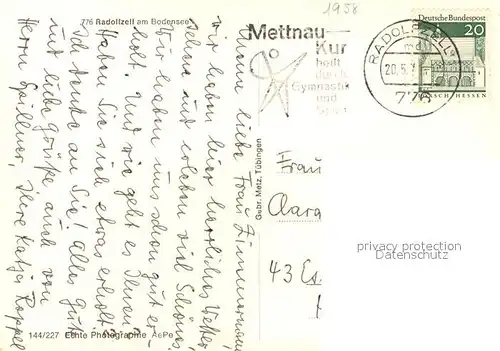 776 Radolfzell am Bodensee
1958
Mettnau-
Kur
heilt
durch
Gymnastik
und
Sport
RADOLFZELL
20.5.
776
Deutsche Bundespost
20
LORSCH HESSEN
Meine liebe Frau Zimmermann,
wir haben hier herrliches Wetter,
schon und erleben viel Schönes.
Wir haben uns schon gut er-
holt. Und wie geht es Ihnen?
Haben Sie sich etwas erholt?
Ich denke an Sie! Alles Gute
und liebe Grüße auch von
Herrn Spillner, Ihre Katja Roppel
Gebr. Metz, Tübingen
Frau
Clara
43 Es
privacy protection
Datenschutz
144/227 Echte Photographie AePe